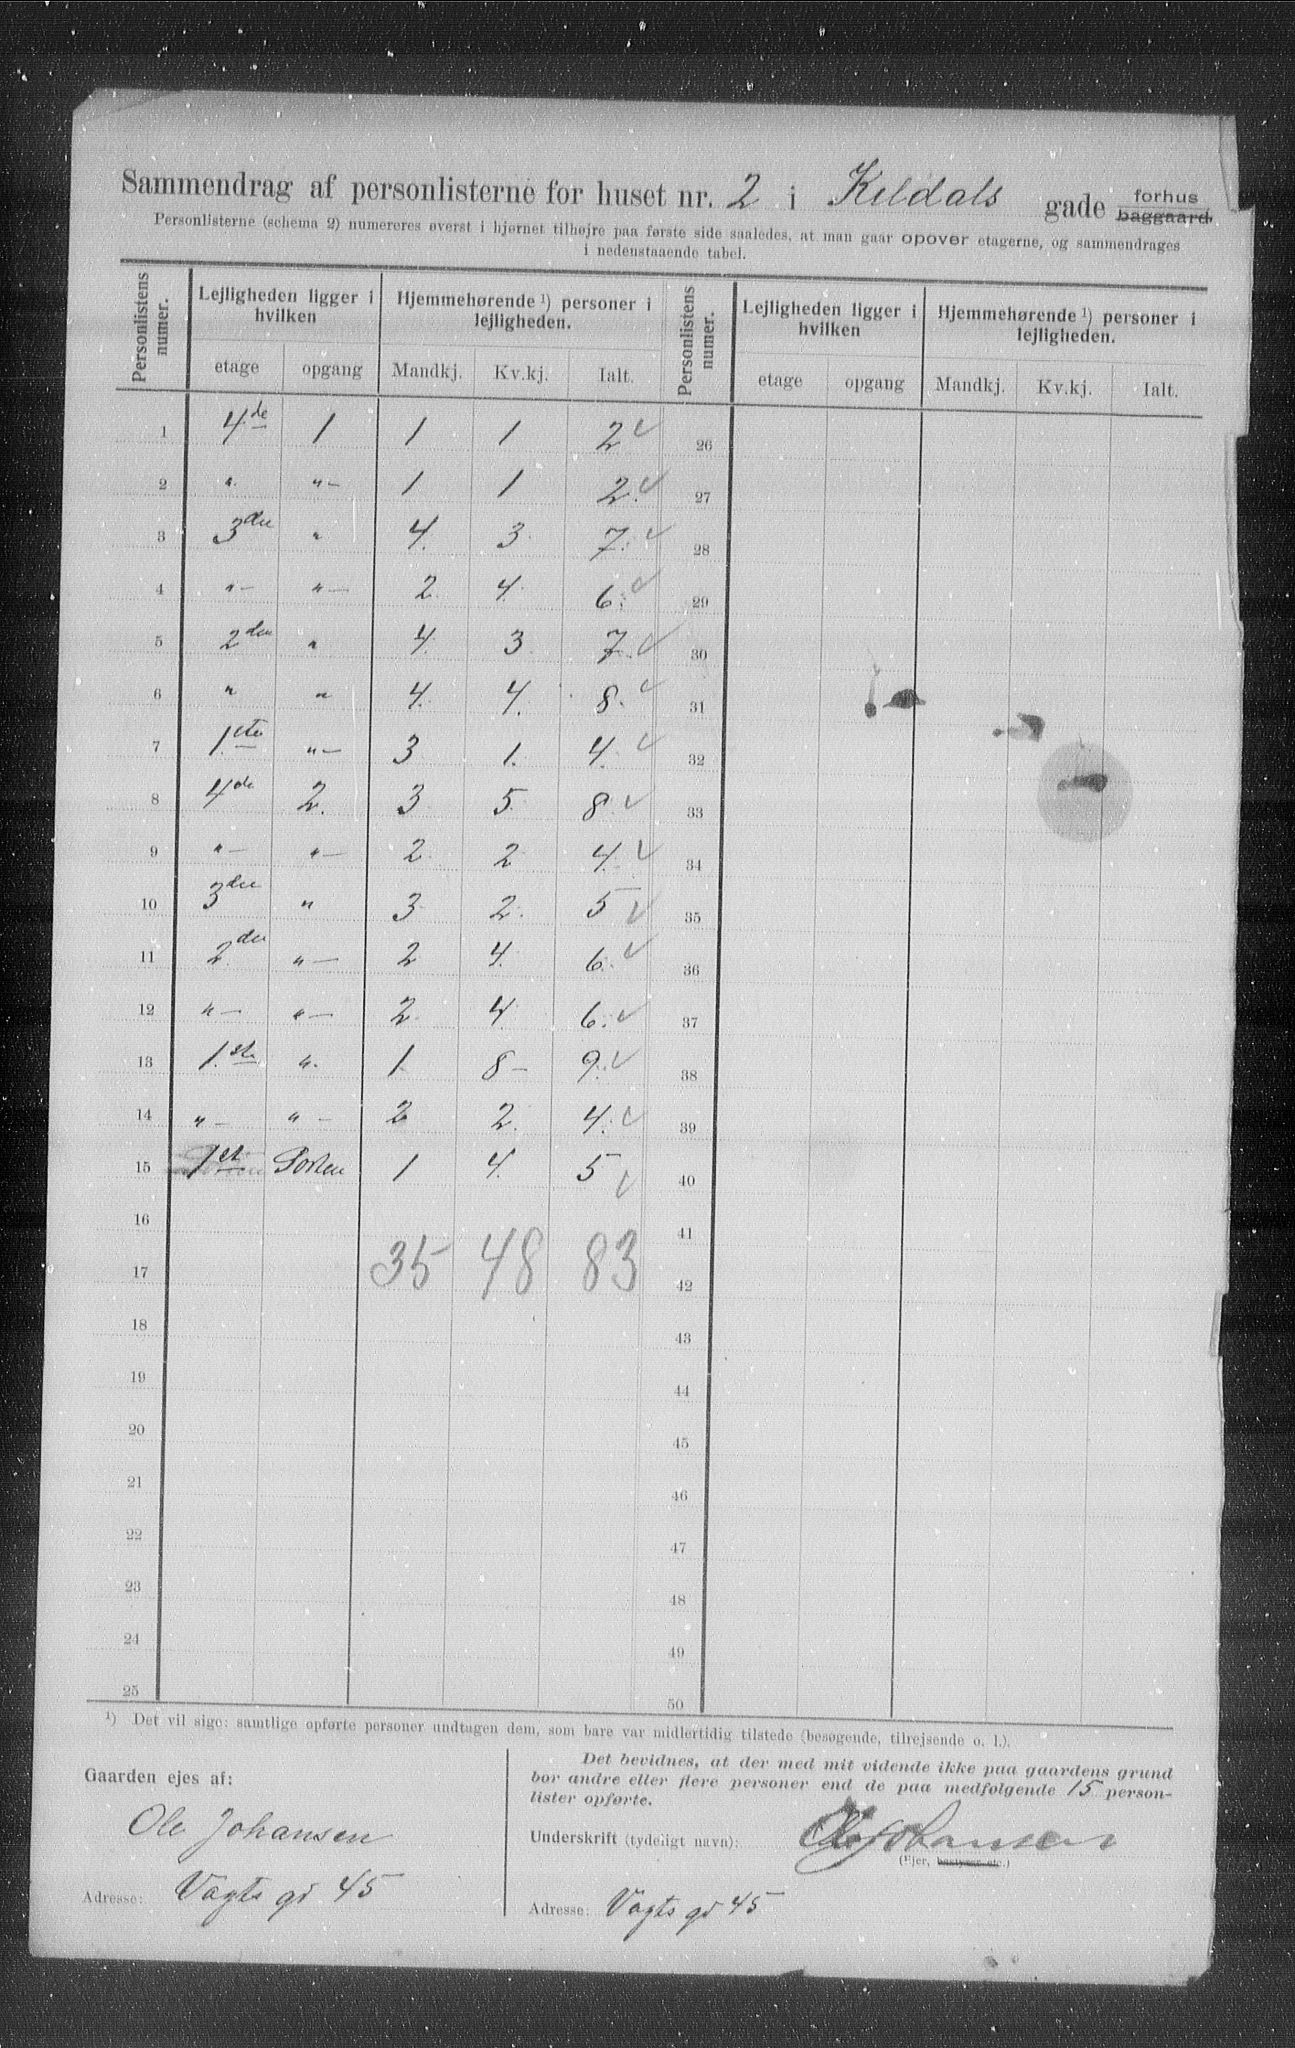 Sammendrag af personlisterne for huset nr. 2 i Keldals gade forhus baggaard.
Personlisterne (schema 2) numereres øverst i hjørnet tilhøjre paa første side saaledes, at man gaar opover etagerne, og sammendrages
i nedenstaaende tabel.
Personlistens numer. Lejligheden ligger i hvilken Hjemmehørende ¹) personer i lejligheden. Personlistens numer. Lejligheden ligger i hvilken Hjemmehørende ¹) personer i lejligheden.
etage opgang Mandkj. Kv.kj. Ialt. etage opgang Mandkj. Kv.kj. Ialt.
1 4de 1 1 1 2 ✓ 26
2 " "- 1 1 2. ✓ 27
3 3die " 4. 3 7. ✓ 28
4 "- "- 2 4. 6. ✓ 29
5 2den " 4. 3 7. ✓ 30
6 " " 4. 4. 8. ✓ 31
7 1.ste "- 3 1. 4. ✓ 32
8 4de 2. 3 5. 8. ✓ 33
9 "- "- 2 2 4. ✓ 34
10 3die " 3 2. 5 ✓ 35
11 2.den "- 2 4. 6. ✓ 36
12 "- "- 2 4 6. ✓ 37
13 1.ste ". 1 8- 9. ✓ 38
14 "- "- 2 2. 4. ✓ 39
15 1st Porten 1 4. 5 ✓ 40
16 41
17 35 48 83 42
18 43
19 44
20 45
21 46
22 47
23 48
24 49
25 50
¹) Det vil sige: samtlige opførte personer undtagen dem, som bare var midlertidig tilstede (besøgende, tilrejsende o. l.).
Gaarden ejes af:
Ole Johansen
Adresse: Vogts gd 45
Det bevidnes, at der med mit vidende ikke paa gaardens grund
bor andre eller flere personer end de paa medfølgende 15 person-
lister opførte.
Underskrift (tydeligt navn): Ole Johansen
(Ejer, bestyrer etc.)
Adresse: Vogts gd 45